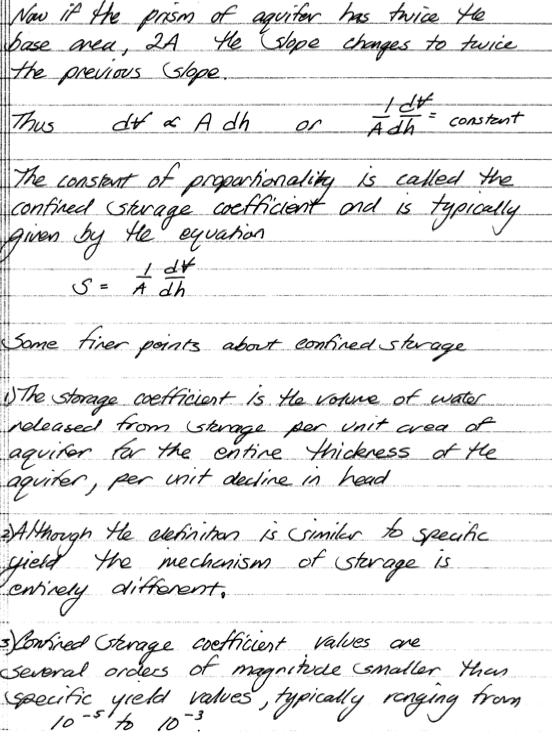 Now if the prism of aquifer has twice the
base area, 2A the slope changes to twice
the previous slope.
Thus dV ∝ A dh or 1/A dV/dh = constant
The constant of proportionality is called the
confined storage coefficient and is typically
given by the equation
S = 1/A dV/dh
Some finer points about confined storage
1) The storage coefficient is the volume of water
released from storage per unit area of
aquifer for the entire thickness of the
aquifer, per unit decline in head
2) Although the definition is similar to specific
yield the mechanism of storage is
entirely different.
3) Confined storage coefficient values are
several orders of magnitude smaller than
specific yield values, typically ranging from
10⁻⁵ to 10⁻³